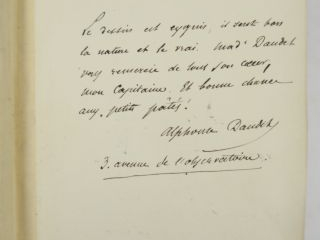 Le dessin est exquis, il sent bon
la nature et le vrai. Mad^e Daudet
vous remercie de tout son cœur,
mon Capitaine. Et bonne chance
aux petits pâtés!
Alphonse Daudet
3. avenue de l'observatoire.